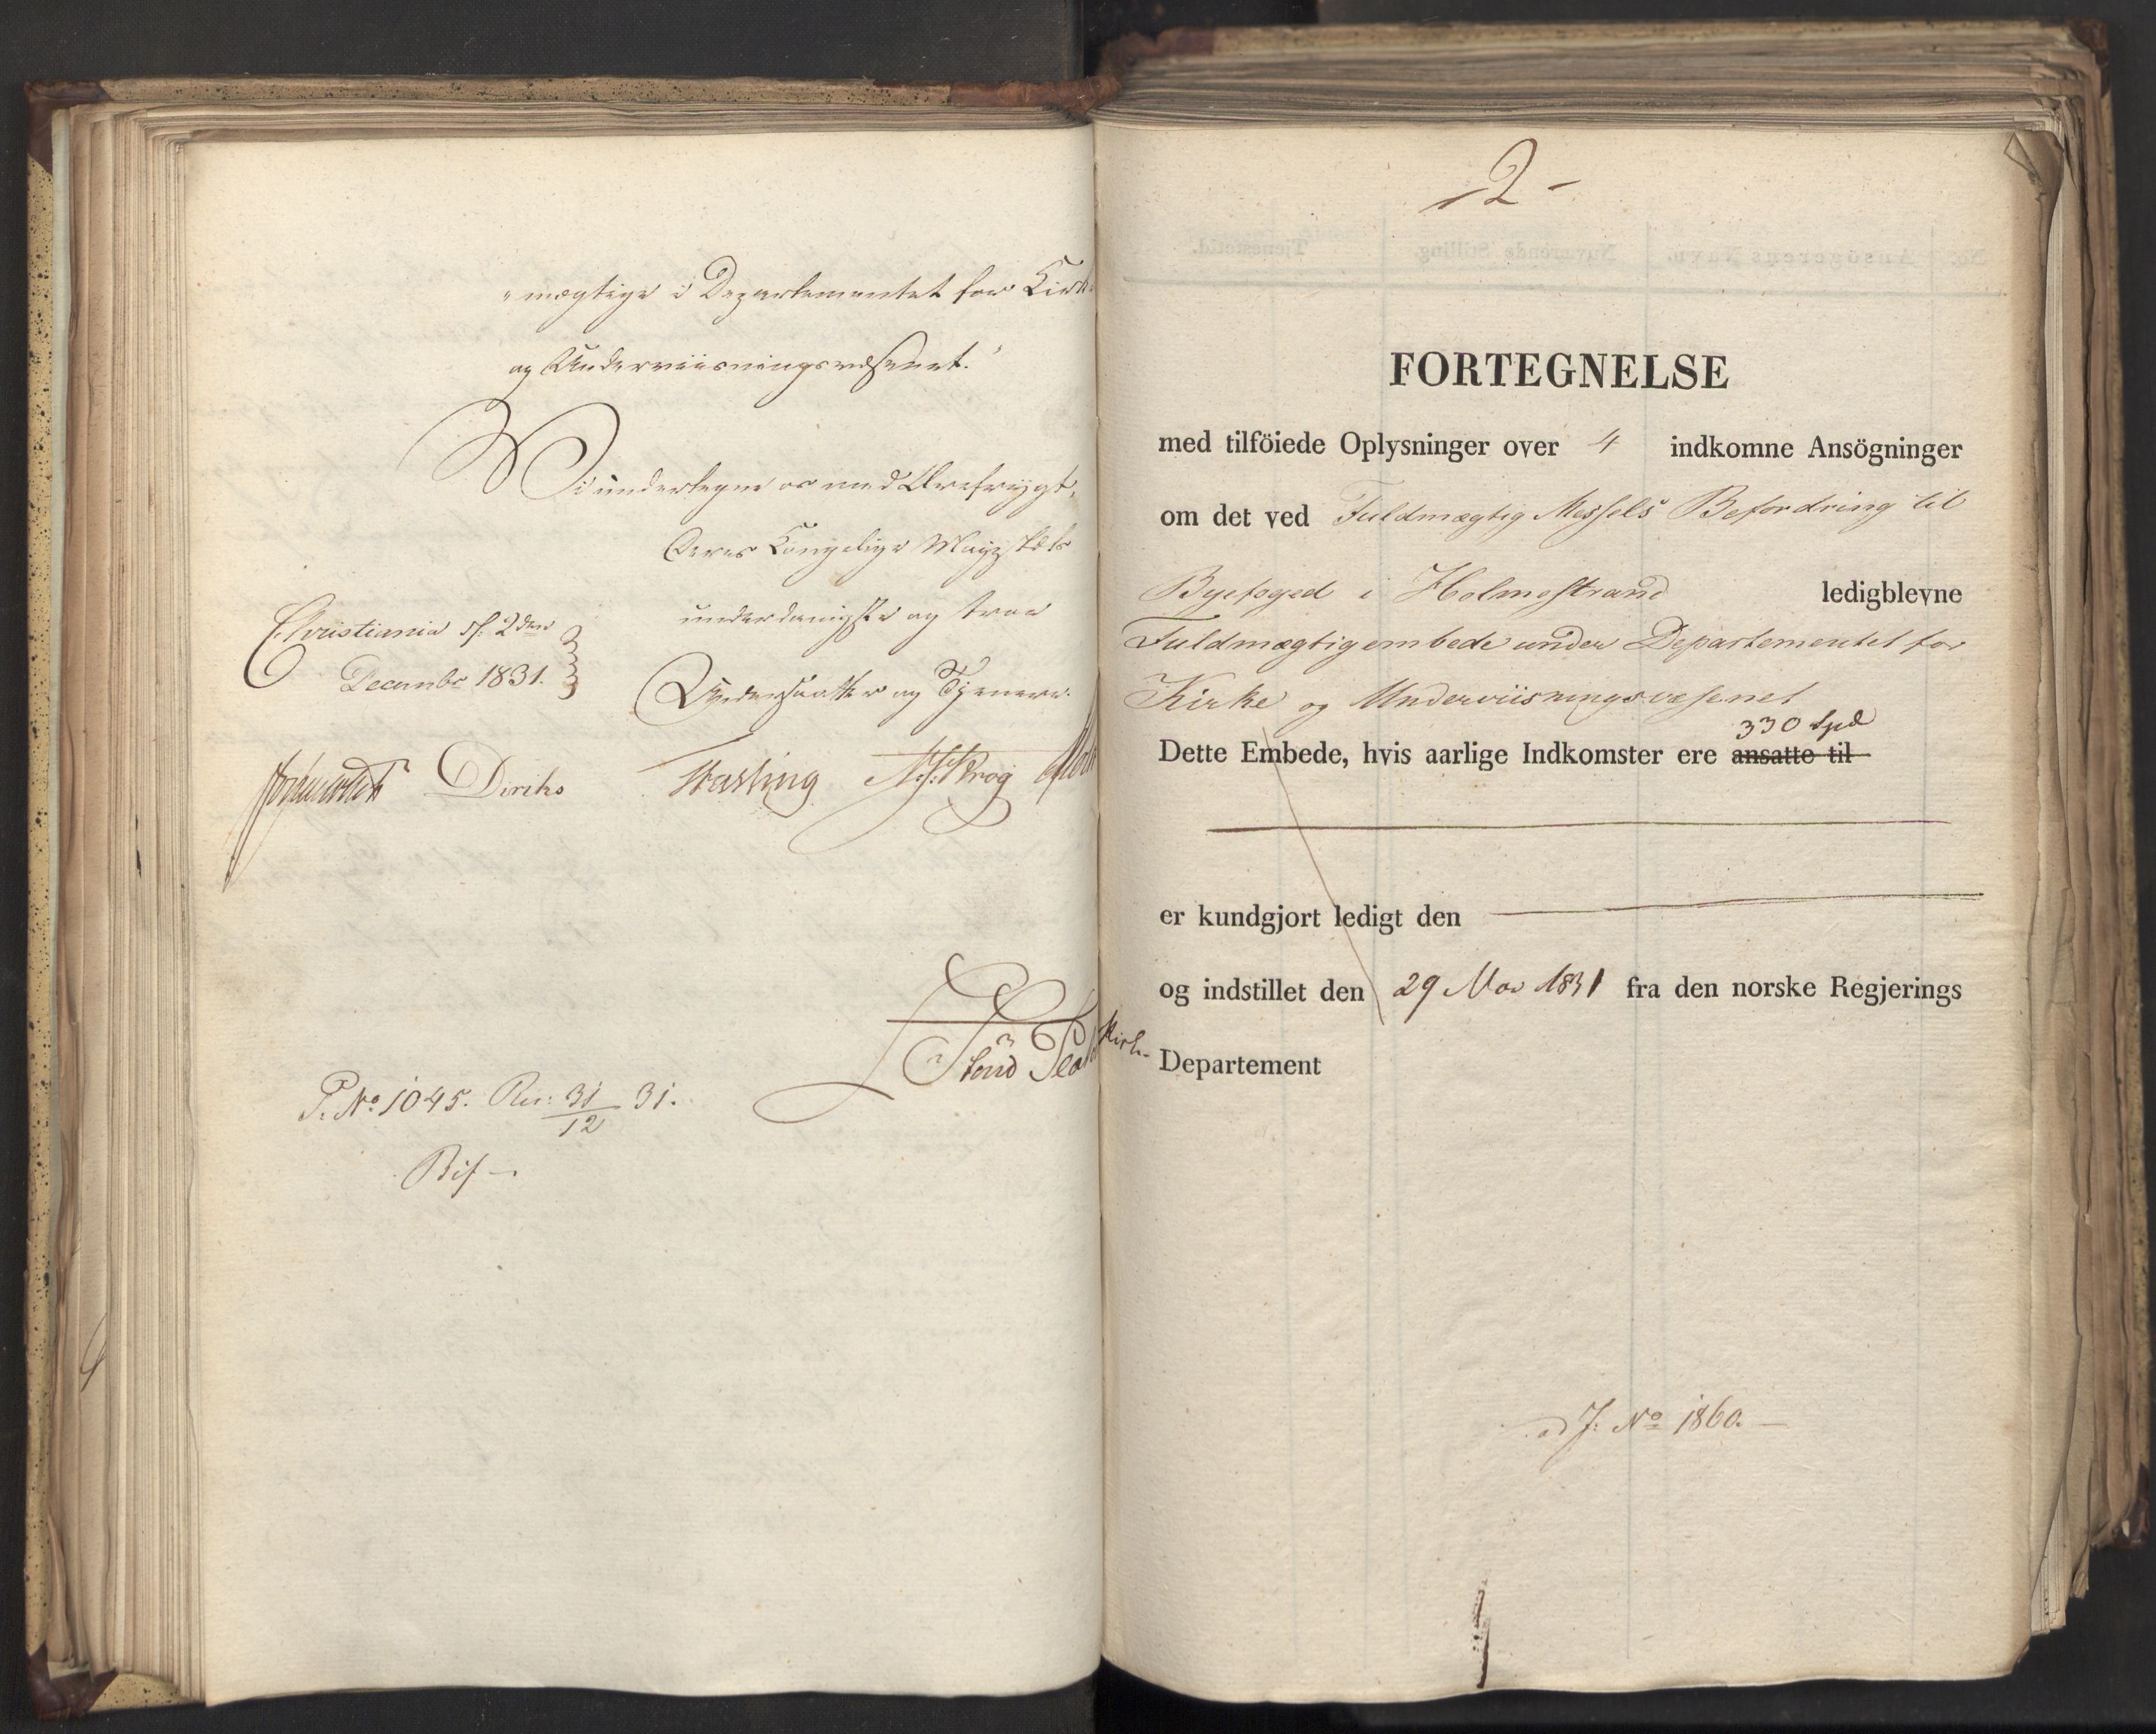 mægtige i Departementet for Kirke
og Underviisningsvæsenet."
Vi undertegne os med Ærefrygt,
Deres Kongelige Majestæts
underdanigste og troe
Undersaatter og Tjenere.
Christiania d. 2den
December 1831.
Diriks
Fasting
Krog
P. No. 1045. Res: 31/12 31.
2-
FORTEGNELSE
med tilföiede Oplysninger over 4 indkomne Ansögninger
om det ved Fuldmægtig Messels Befordring til
Byefoged i Holmestrand ledigblevne
Fuldmægtigembede under Departementet for
Kirke og Underviisningsvæsenet
330 Spd
Dette Embede, hvis aarlige Indkomster ere ansatte til
er kundgjort ledigt den
og indstillet den 29 Nov 1831 fra den norske Regjerings
Kirke- Departement
ad J: No 1860.